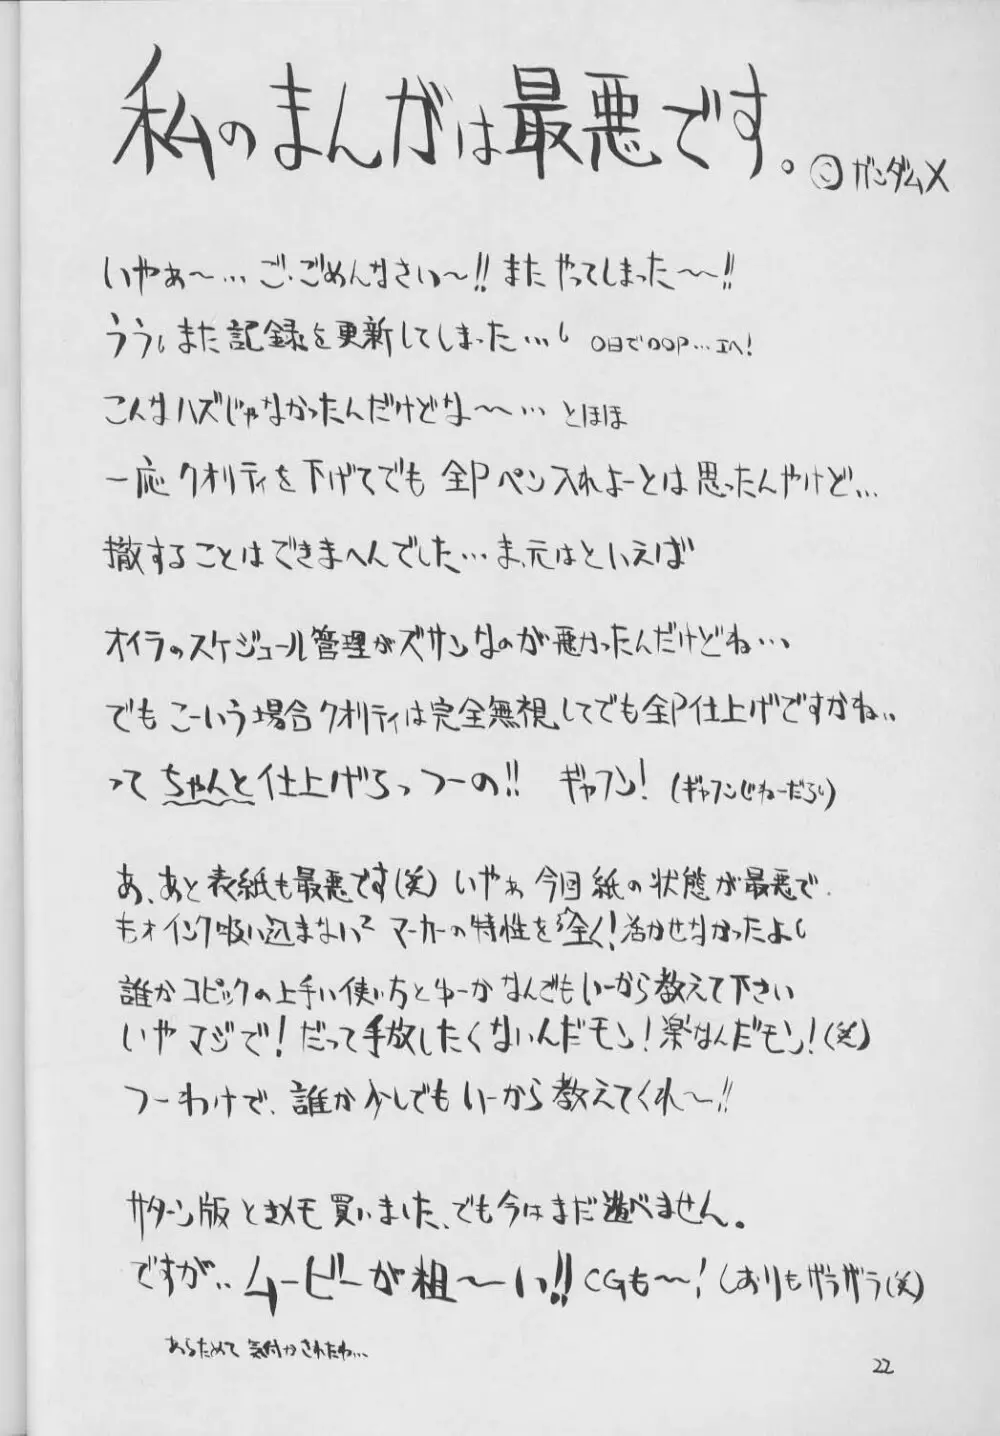 私のまんがは最悪です。 ©ガンダムX
いやぁ〜… ご・ごめんなさい〜!! また やってしまった〜〜!!
ううぅまた 記録を更新してしまった… 0日で00P…エへ!
こんなハズじゃなかったんだけどな〜〜… とほほ
一応 クオリティを下げてでも 全Pペン入れよーとは思ったんやけど…
撤することはできまへんでした… ま、元はといえば
オイラのスケジュール管理がズサンなのが悪かったんだけどね…
でも こーいう場合クオリティは完全無視してでも全P仕上げですかね‥
って ちゃんと仕上げろっつーの!! ギャフン! (ギャフンじねーだろい)
あ、あと 表紙も最悪です(笑) いやぁ 今回 紙の状態が最悪で
もォインク吸い込まないって マーカーの特性を全く!活かせなかったよぅ
誰かコピックの上手い使い方とゆーかなんでもいーから教えて下さい
いや マジで! だって手放したくないんだモン! 楽なんだモン! (笑)
つーわけで、誰か少しでもいーから教えてくれ〜!!
サターン版 ときメモ買いました、でも今はまだ遊べません。
ですが‥ ムービーが粗〜い!! CGも〜! しおりもザラザラ(笑)
あらためて気付かされたわ…
22